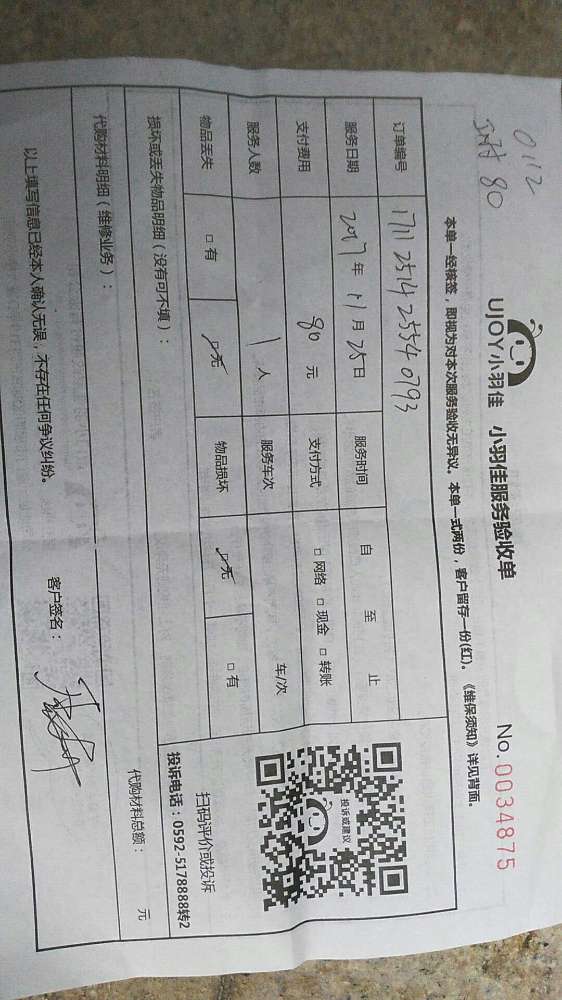 0112
UJOY小羽佳 小羽佳服务验收单 No.0034875
本单一经核签，即视为对本次服务验收无异议。本单一式两份，客户留存一份(红)。《维保须知》详见背面。
订单编号 1711 2514 2554 0793
服务日期 2017年11月25日 服务时间 自 至 止
支付费用 80元 支付方式 □网络 □现金 □转账
服务人数 1人 服务车次 车/次
物品丢失 □有 ☑无 物品损坏 ☑无 □有
损坏或丢失物品明细（没有可不填）：
代购材料明细（维修业务）： 代购材料总额： 元
投诉或建议
扫码评价或投诉
投诉电话：0592-5178888转2
以上填写信息已经本人确认无误，不存在任何争议纠纷。 客户签名：